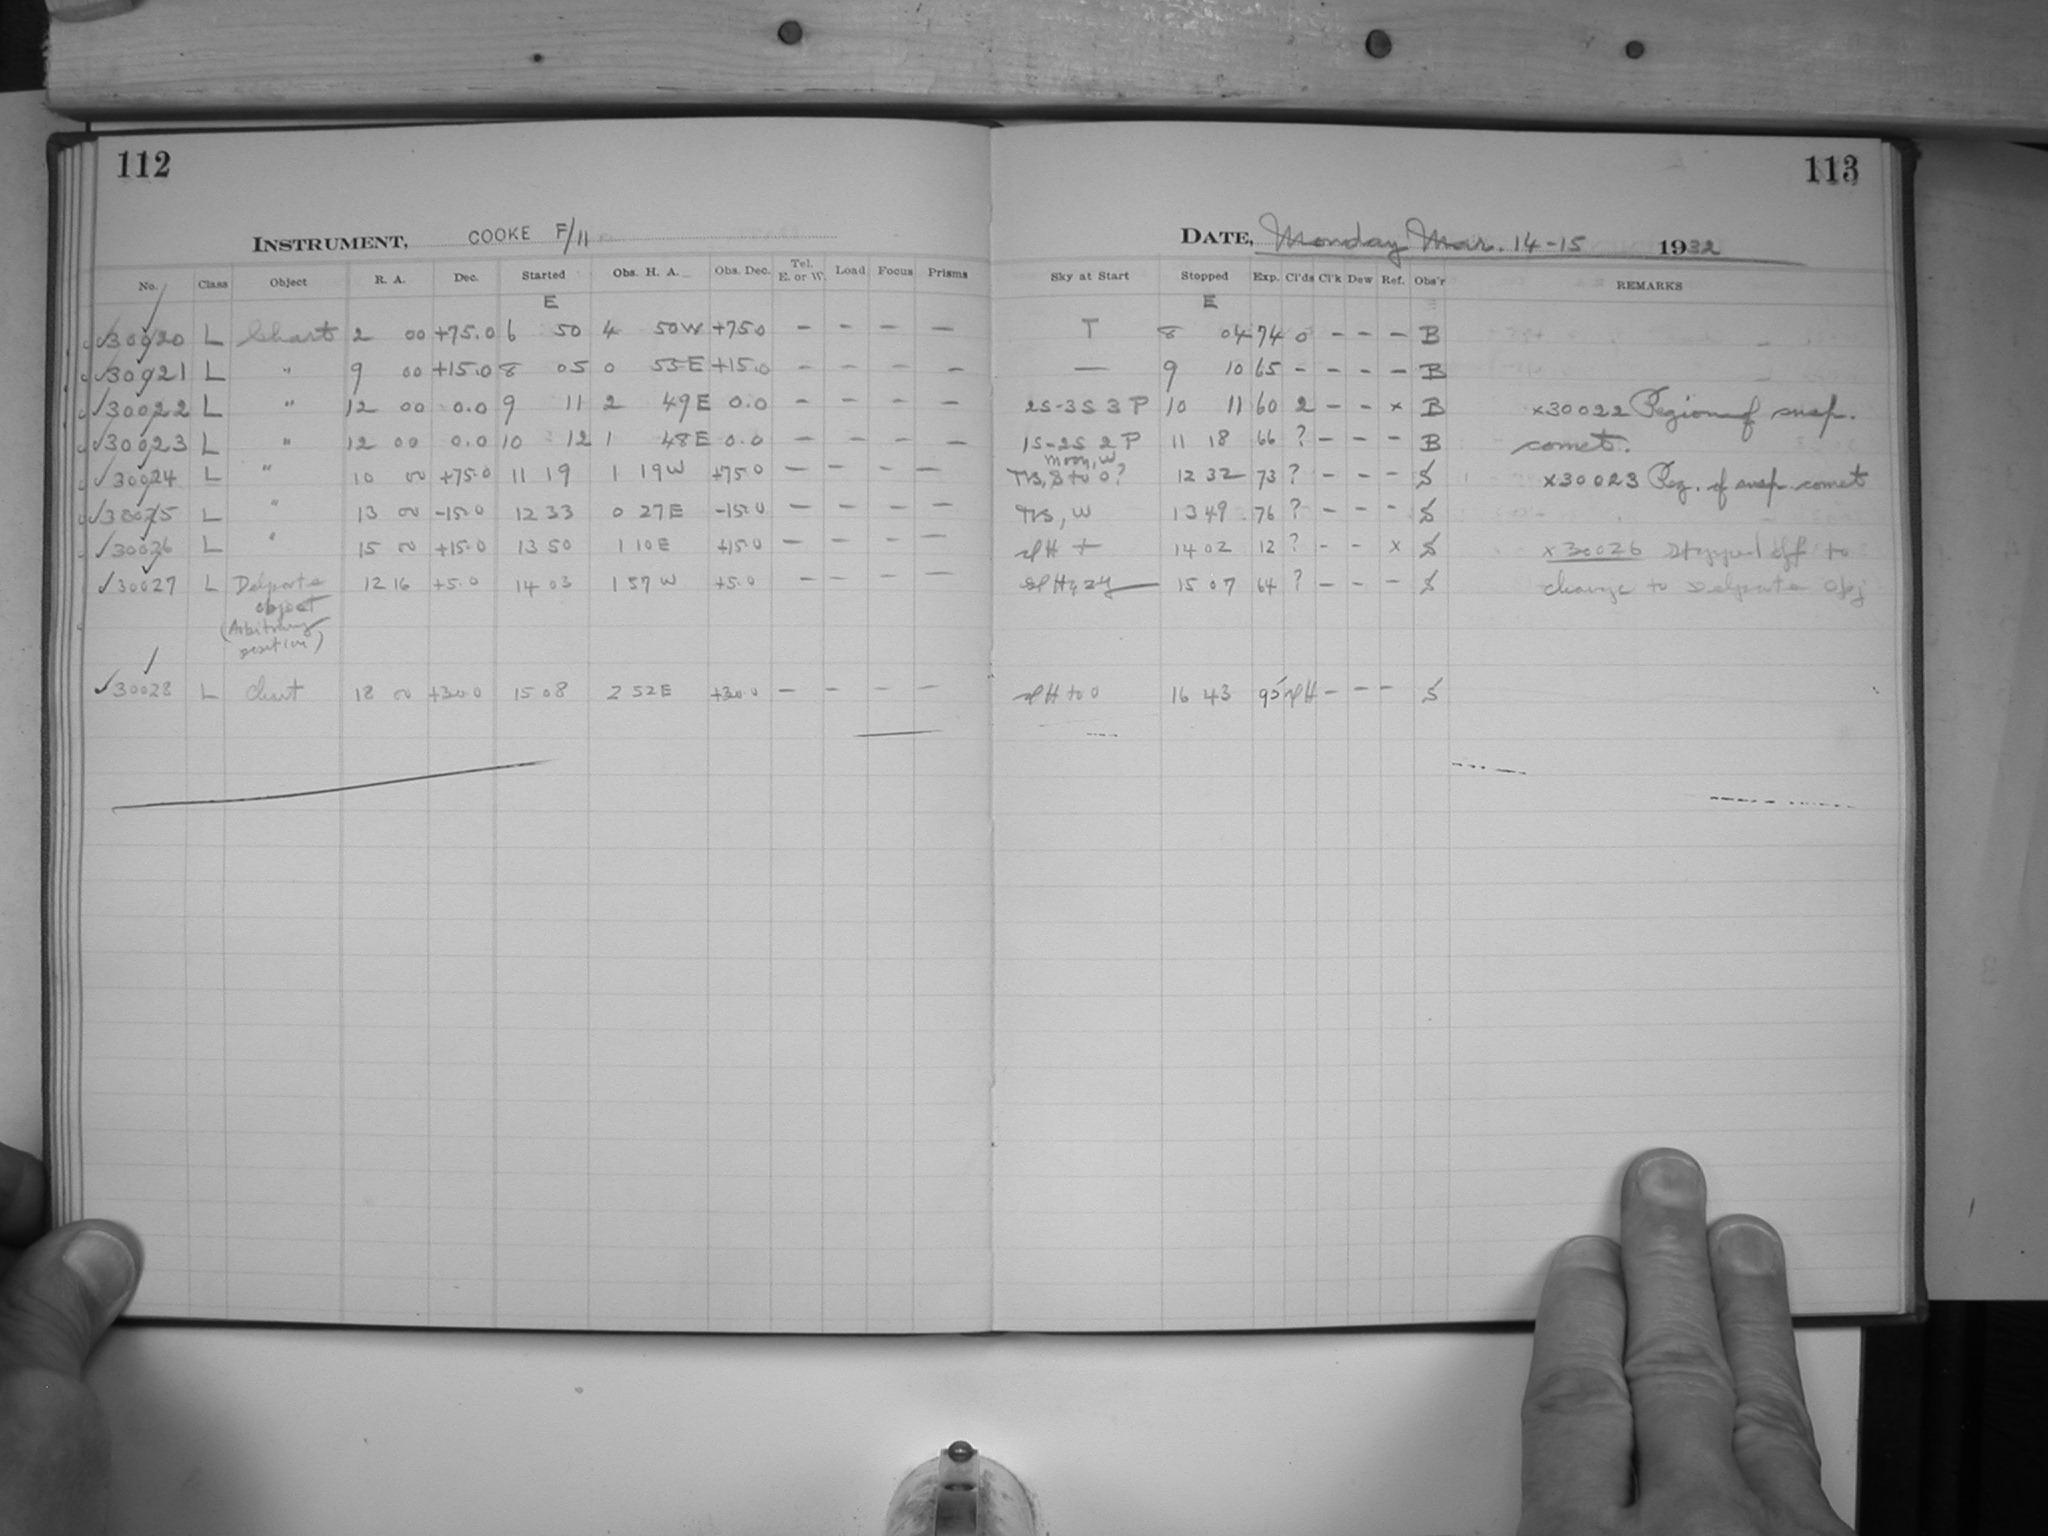 112
INSTRUMENT, COOKE F/11
No. Class Object R. A. Dec. Started Obs. H. A. Obs. Dec. Tel. E. or W. Load Focus Prisms
E
30020 L Chart 2 00 +75.0 6 50 4 50W +75.0 - - - -
30021 L " 9 00 +15.0 8 05 0 53E +15.0 - - - -
30022 L " 12 00 0.0 9 11 2 49E 0.0 - - - -
30023 L " 12 00 0.0 10 12 1 48E 0.0 - - - -
30024 L " 10 00 +75.0 11 19 1 19W +75.0 - - - -
30025 L " 13 00 -15.0 12 33 0 27E -15.0 - - - -
30026 L " 15 00 +15.0 13 50 1 10E +15.0 - - - -
30027 L Delporte 12 16 +5.0 14 03 1 57 W +5.0 - - - -
object
(Arbitrary
position)
30028 L Chart 18 00 +30.0 15 08 2 52E +30.0 - - - -
113
DATE, Monday Mar. 14-15 1932
Sky at Start Stopped Exp. Cl'ds Cl'k Dew Ref. Obs'r REMARKS
E
T 8 04 74 0 - - - B
— 9 10 65 - - - - B
2S-3S 3 P 10 11 60 2 - - x B x30022 Region of susp.
1S-2S 2 P 11 18 66 ? - - - B comet.
Moon, W
12 32 73 ? - - - S x30023 Reg. of susp. comet
13 49 76 ? - - - S
14 02 12 ? - - x S x30026 Stopped off to
15 07 64 ? - - - S change to Delporte Obj
16 43 95 - - - S